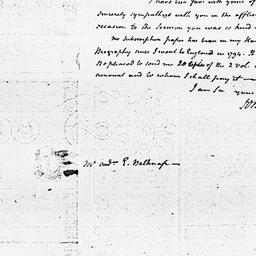 I have been fav'd with yours of
sincerely sympathise with you in the afflic
occasion to the Sermon you was so kind
No Subscription paper has been in my Ha
Biography since I went to England in 1794. If
be pleased to send me 20 copies of the 2 vol.
amount and to whom I shall pay it —
I am Sir your
Mr And<sup>w</sup> E. Belknap —